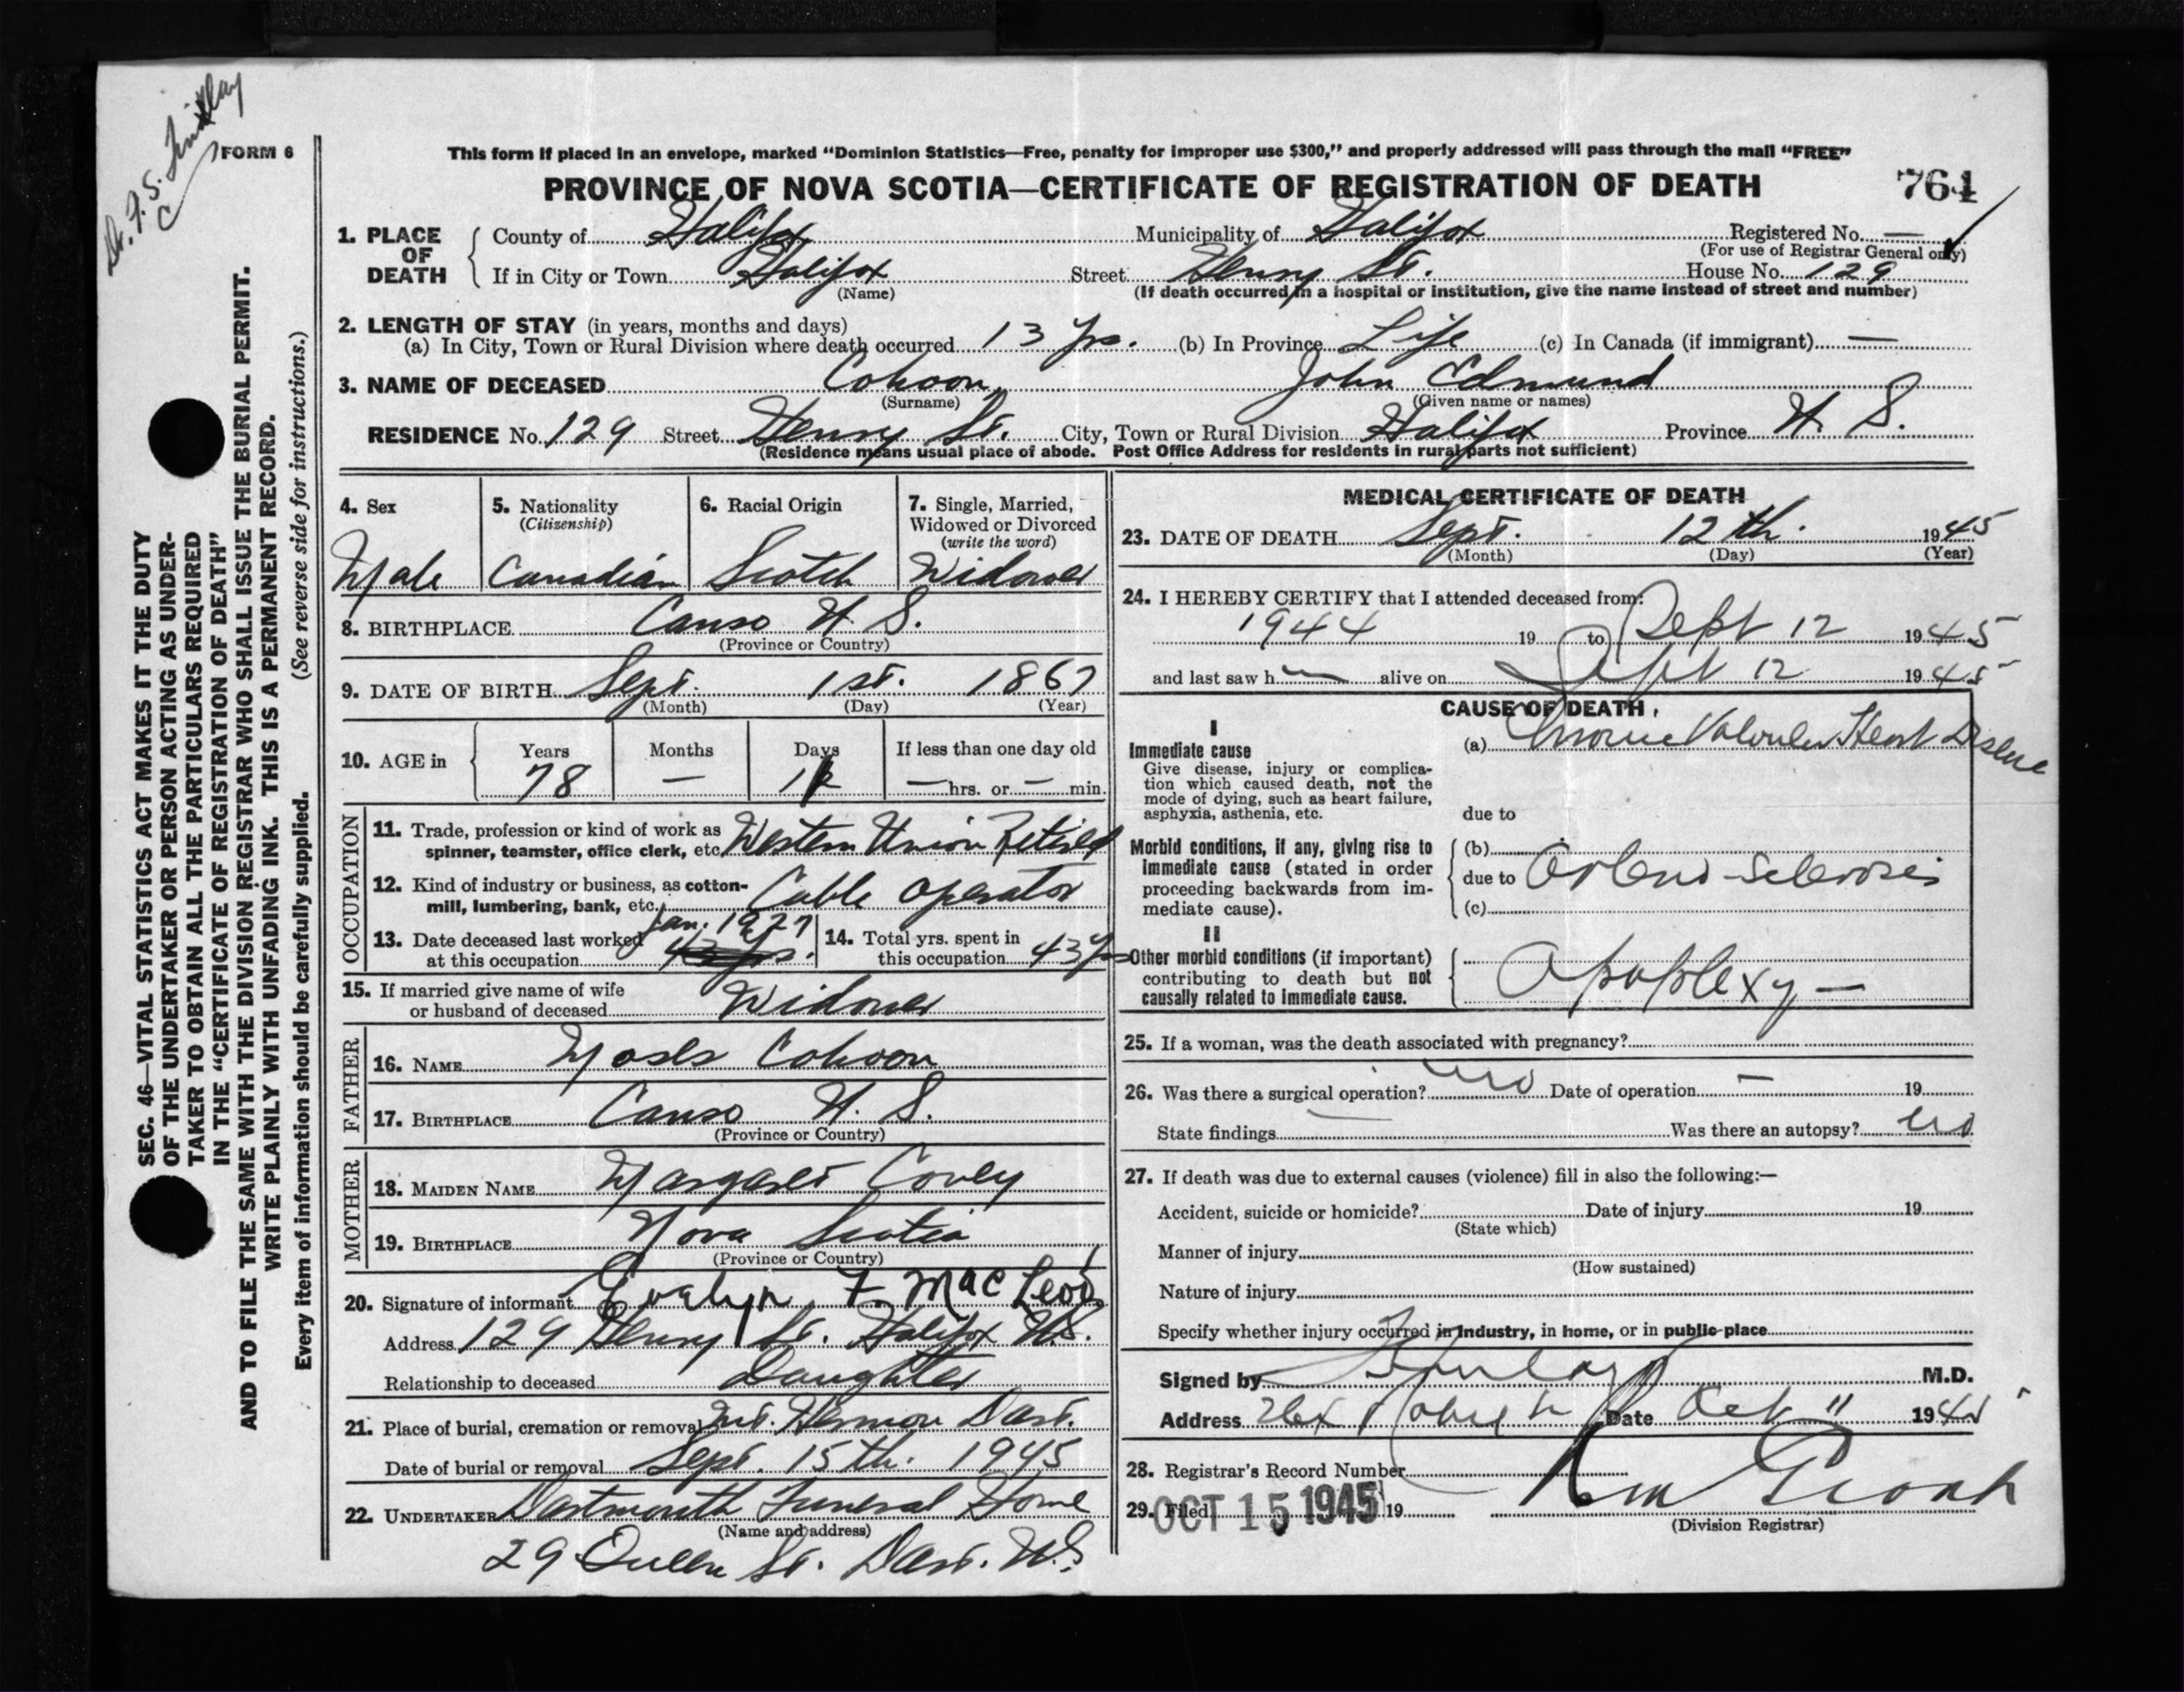 Dr. F. S. Finlay
FORM 6
This form if placed in an envelope, marked “Dominion Statistics—Free, penalty for improper use $300,” and properly addressed will pass through the mail “FREE”
PROVINCE OF NOVA SCOTIA—CERTIFICATE OF REGISTRATION OF DEATH
764
1. PLACE OF DEATH
County of Halifax Municipality of Halifax Registered No. —
(For use of Registrar General only)
If in City or Town Halifax Street Henry St. House No. 129
(Name) (If death occurred in a hospital or institution, give the name instead of street and number)
2. LENGTH OF STAY (in years, months and days)
(a) In City, Town or Rural Division where death occurred 13 yrs. (b) In Province Life (c) In Canada (if immigrant) —
3. NAME OF DECEASED Cohoon, John Edmund
(Surname) (Given name or names)
RESIDENCE No. 129 Street Henry St. City, Town or Rural Division Halifax Province N. S.
(Residence means usual place of abode. Post Office Address for residents in rural parts not sufficient)
4. Sex
Male
5. Nationality
(Citizenship)
Canadian
6. Racial Origin
Scotch
7. Single, Married,
Widowed or Divorced
(write the word)
Widower
8. BIRTHPLACE Canso N. S.
(Province or Country)
9. DATE OF BIRTH Sept. 1st. 1867
(Month) (Day) (Year)
10. AGE in
Years Months Days If less than one day old
78 — — hrs. or — min.
OCCUPATION
11. Trade, profession or kind of work as
spinner, teamster, office clerk, etc. Western Union Retired
12. Kind of industry or business, as cotton-
mill, lumbering, bank, etc. Cable operator
13. Date deceased last worked Jan. 1927
at this occupation 43 yrs.
14. Total yrs. spent in
this occupation 43 yrs
15. If married give name of wife
or husband of deceased Widower
FATHER
16. NAME Moses Cohoon
17. BIRTHPLACE Canso N. S.
(Province or Country)
MOTHER
18. MAIDEN NAME Margaret Covey
19. BIRTHPLACE Nova Scotia
(Province or Country)
20. Signature of informant Evelyn F. MacLeod
Address 129 Henry St. Halifax N.S.
Relationship to deceased Daughter
21. Place of burial, cremation or removal Mt. Hermon Dart.
Date of burial or removal Sept. 15th. 1945
22. UNDERTAKER Dartmouth Funeral Home
(Name and address)
29 Queen St. Dart. N.S.
MEDICAL CERTIFICATE OF DEATH
23. DATE OF DEATH Sept. 12th. 1945
(Month) (Day) (Year)
24. I HEREBY CERTIFY that I attended deceased from:
1944 19 to Sept 12 1945
and last saw h alive on Sept 12 1945
CAUSE OF DEATH
I
Immediate cause
Give disease, injury or complica-
tion which caused death, not the
mode of dying, such as heart failure,
asphyxia, asthenia, etc.
(a) Chronic Valvular Heart Disease
due to
Morbid conditions, if any, giving rise to
immediate cause (stated in order
proceeding backwards from im-
mediate cause).
(b)
due to Arterio-sclerosis
(c)
II
Other morbid conditions (if important)
contributing to death but not
causally related to immediate cause.
Apoplexy —
25. If a woman, was the death associated with pregnancy?
26. Was there a surgical operation? no Date of operation — 19
State findings — Was there an autopsy? no
27. If death was due to external causes (violence) fill in also the following:—
Accident, suicide or homicide? Date of injury 19
(State which)
Manner of injury
(How sustained)
Nature of injury
Specify whether injury occurred in industry, in home, or in public place
Signed by Finlay M.D.
Address Date Oct 11 1945
28. Registrar's Record Number
29. Filed OCT 15 1945 19
(Division Registrar)
SEC. 46—VITAL STATISTICS ACT MAKES IT THE DUTY
OF THE UNDERTAKER OR PERSON ACTING AS UNDER-
TAKER TO OBTAIN ALL THE PARTICULARS REQUIRED
IN THE “CERTIFICATE OF REGISTRATION OF DEATH”
AND TO FILE THE SAME WITH THE DIVISION REGISTRAR WHO SHALL ISSUE THE BURIAL PERMIT.
WRITE PLAINLY WITH UNFADING INK. THIS IS A PERMANENT RECORD.
Every item of information should be carefully supplied. (See reverse side for instructions.)